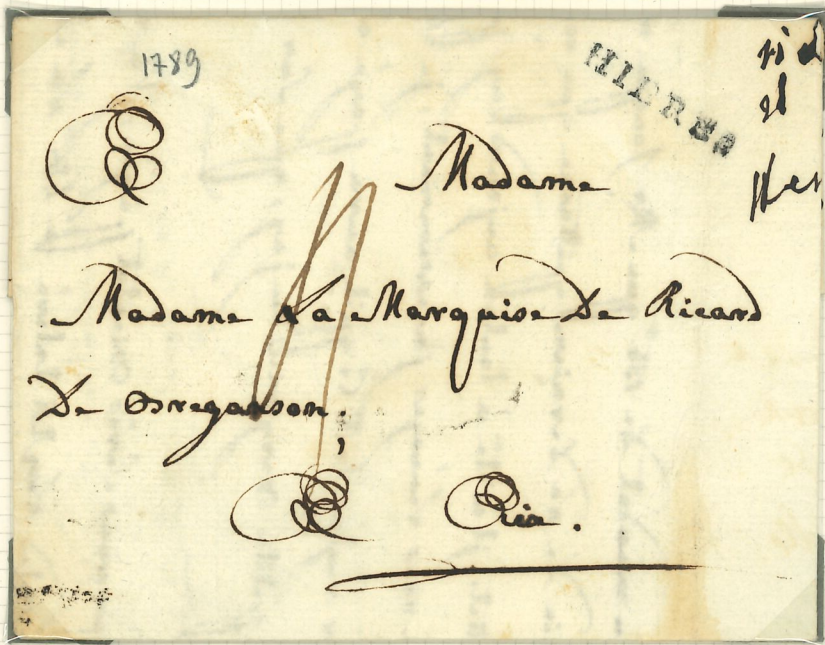 1789
HIERES
Madame
Madame La Marquise De Ricard
De Breganson.
Aix.